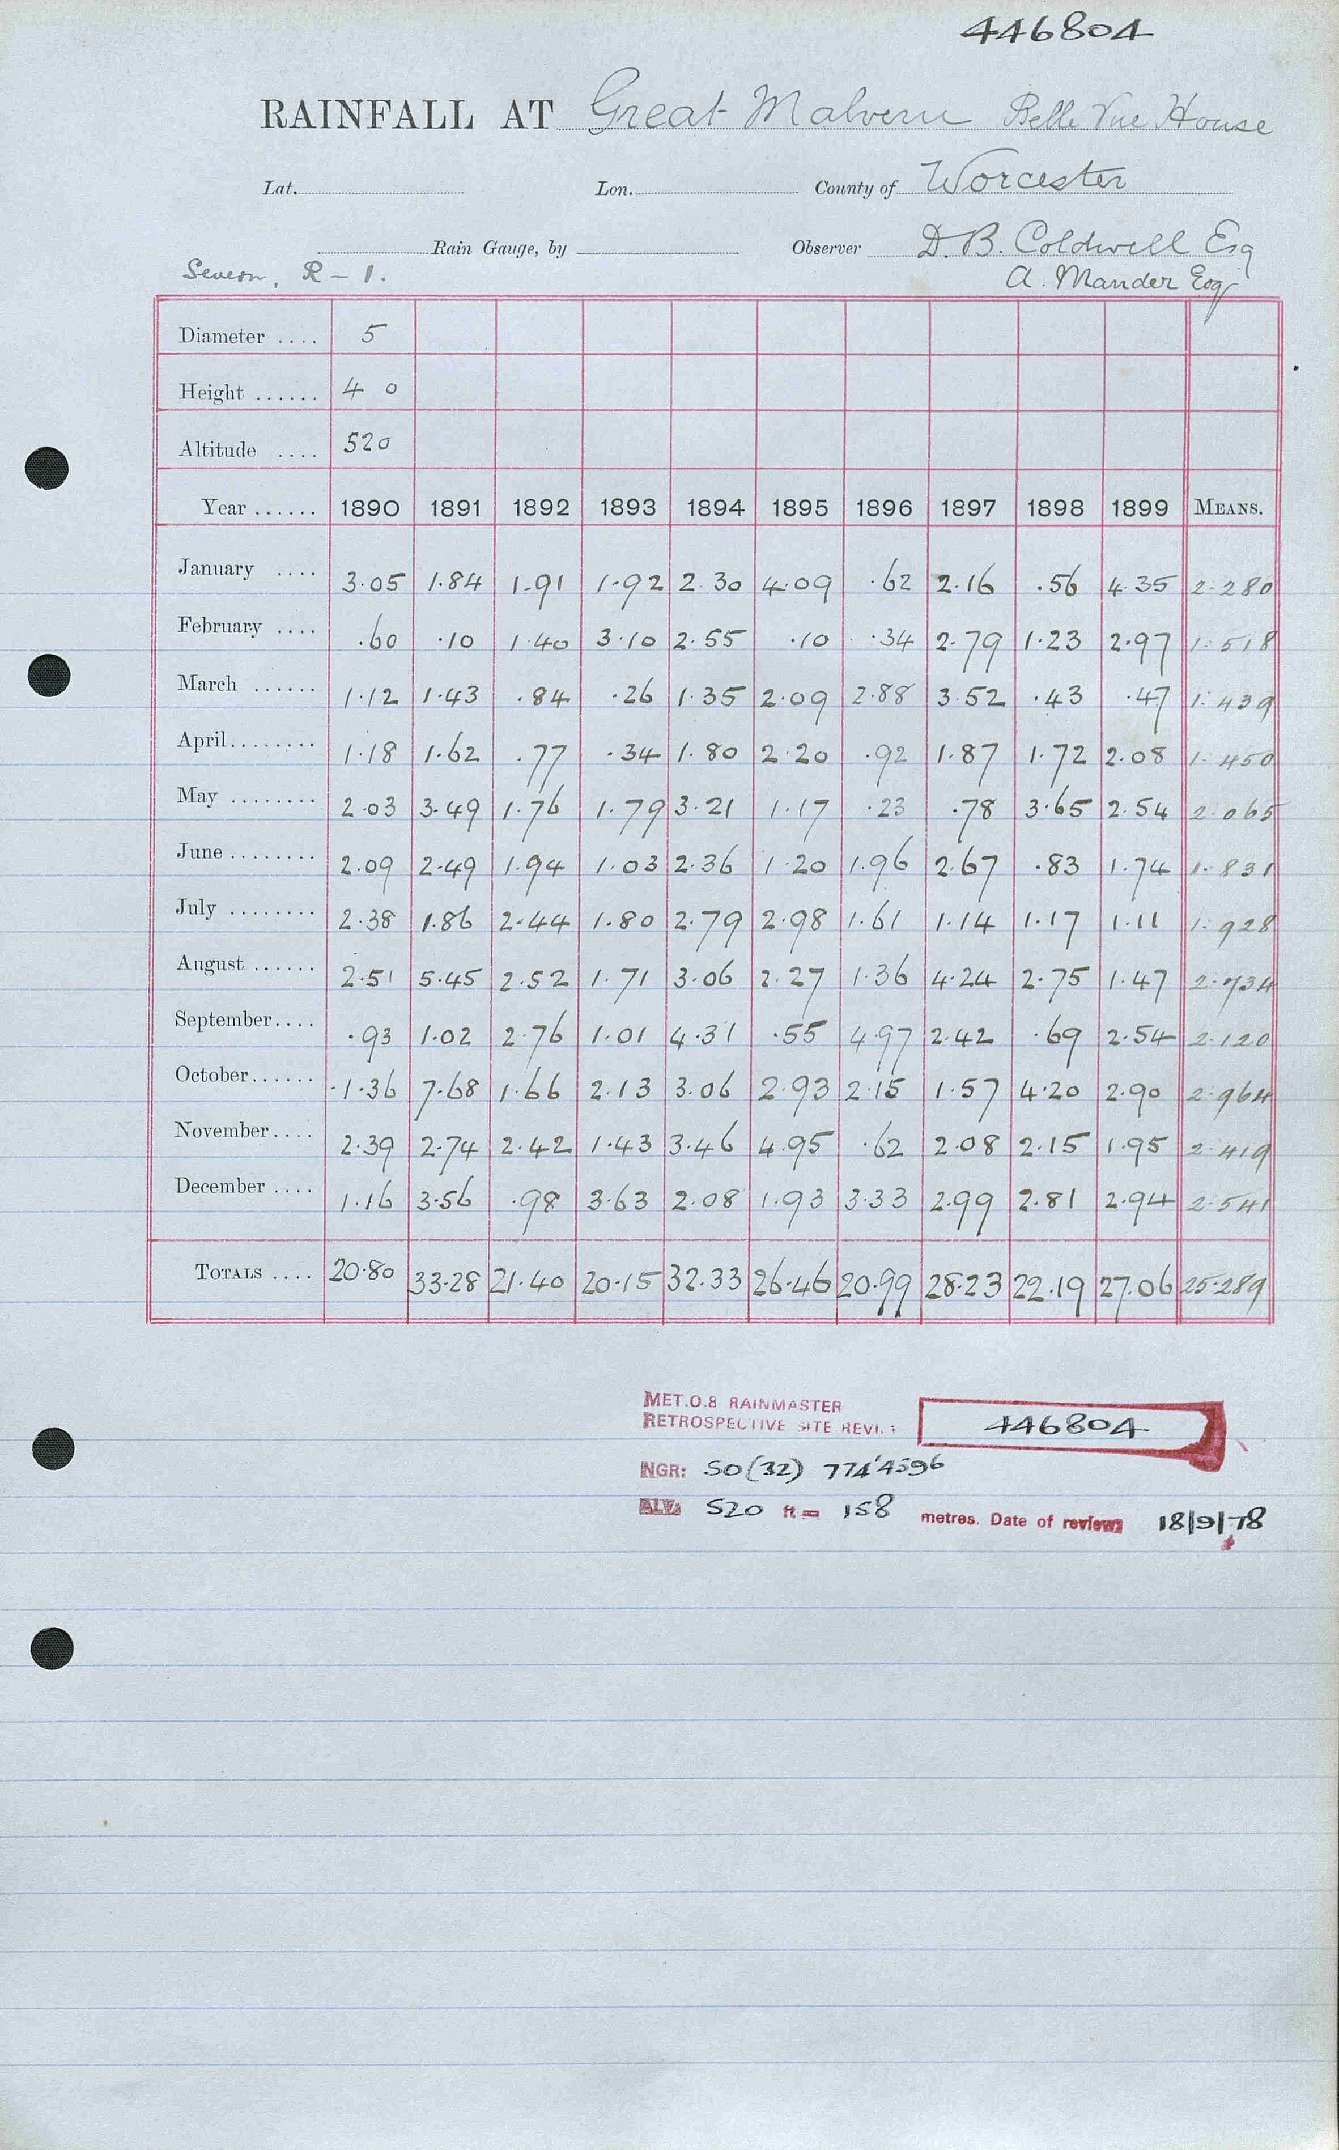 446804
RAINFALL AT Great Malvern Belle Vue House
Lat. Lon. County of Worcester
Rain Gauge, by Observer D.B. Coldwell Esq
Severn, R – 1. A. Mander Esq
Diameter .... 5
Height ...... 4 0
Altitude .... 520
Year ...... 1890 1891 1892 1893 1894 1895 1896 1897 1898 1899 MEANS.
January .... 3.05 1.84 1.91 1.92 2.30 4.09 .62 2.16 .56 4.35 2.280
February .... .60 .10 1.40 3.10 2.55 .10 .34 2.79 1.23 2.97 1.518
March ...... 1.12 1.43 .84 .26 1.35 2.09 2.88 3.52 .43 .47 1.439
April........ 1.18 1.62 .77 .34 1.80 2.20 .92 1.87 1.72 2.08 1.450
May ........ 2.03 3.49 1.76 1.79 3.21 1.17 .23 .78 3.65 2.54 2.065
June ........ 2.09 2.49 1.94 1.03 2.36 1.20 1.96 2.67 .83 1.74 1.831
July ........ 2.38 1.86 2.44 1.80 2.79 2.98 1.61 1.14 1.17 1.11 1.928
August ...... 2.51 5.45 2.52 1.71 3.06 2.27 1.36 4.24 2.75 1.47 2.734
September.... .93 1.02 2.76 1.01 4.31 .55 4.97 2.42 .69 2.54 2.120
October...... 1.36 7.68 1.66 2.13 3.06 2.93 2.15 1.57 4.20 2.90 2.964
November.... 2.39 2.74 2.42 1.43 3.46 4.95 .62 2.08 2.15 1.95 2.419
December .... 1.16 3.56 .98 3.63 2.08 1.93 3.33 2.99 2.81 2.94 2.541
TOTALS .... 20.80 33.28 21.40 20.15 32.33 26.46 20.99 28.23 22.19 27.06 25.289
MET.O.8 RAINMASTER
RETROSPECTIVE SITE REVI. 446804
NGR: SO(32) 774'4596
ALV: 520 ft = 158 metres. Date of review: 18/9/78